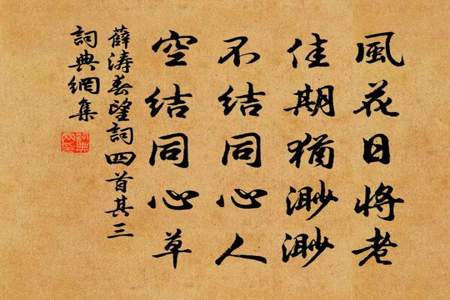 風花日將老
佳期猶渺渺
不結同心人
空結同心草
薛涛春望詞四首其三
詞典網集